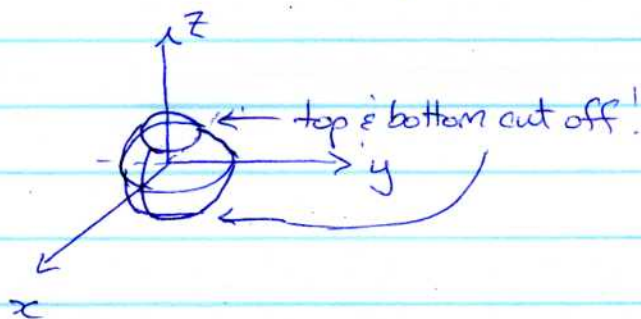 z
← top & bottom cut off!
y
x